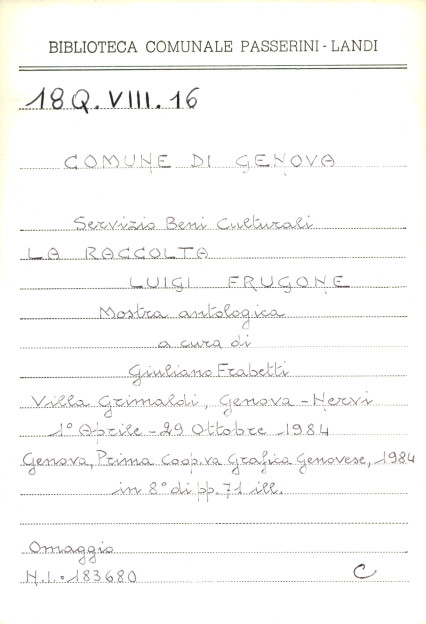 BIBLIOTECA COMUNALE PASSERINI-LANDI
18Q.VIII.16
COMUNE DI GENOVA
Servizio Beni Culturali
LA RACCOLTA
LUIGI FRUGONE
Mostra antologica
a cura di
Giuliano Frabetti
Villa Grimaldi, Genova-Nervi
1° Aprile-29 Ottobre 1984
Genova, Prima Coop.va Grafica Genovese, 1984
in 8° di pp. 71 ill.
Omaggio
N.I.=183680 C